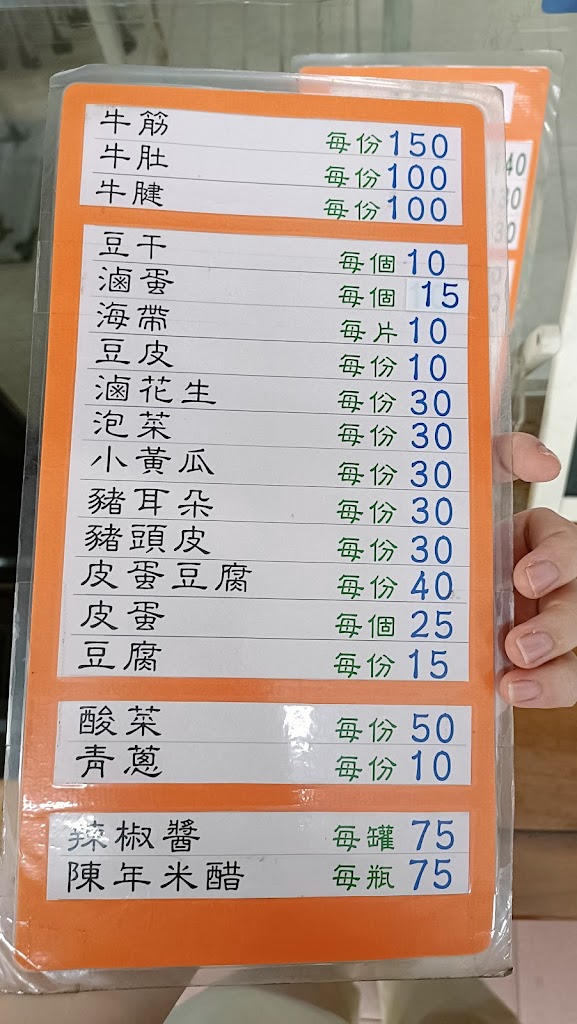 牛筋 每份150
牛肚 每份100
牛腱 每份100
豆干 每個10
滷蛋 每個15
海帶 每片10
豆皮 每份10
滷花生 每份30
泡菜 每份30
小黃瓜 每份30
豬耳朵 每份30
豬頭皮 每份30
皮蛋豆腐 每份40
皮蛋 每個25
豆腐 每份15
酸菜 每份50
青蔥 每份10
辣椒醬 每罐75
陳年米醋 每瓶75